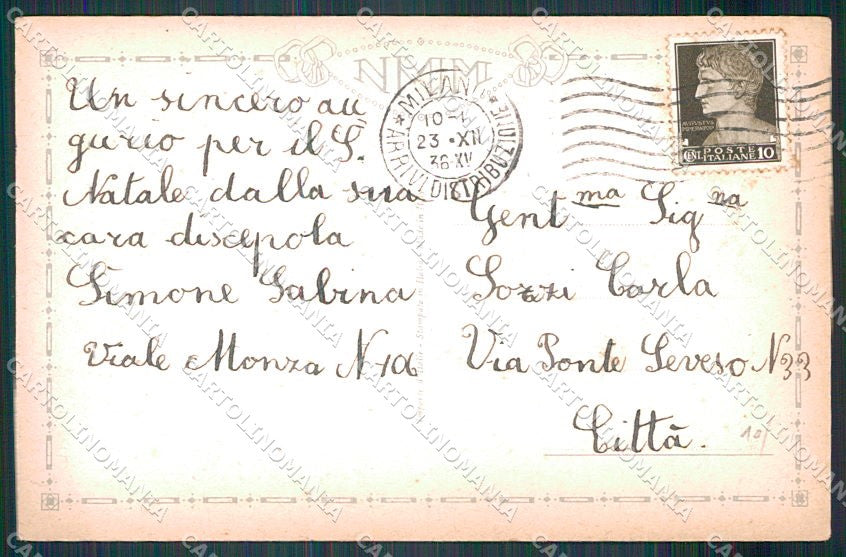 NMM
Un sincero au
gurio per il S.
Natale dalla sua
cara discepola
Simone Sabina
Viale Monza N 106
MILANO
10-
23 · XII
36 XV
ARRIVI DISTRIBUZIONE
AUGUSTUS
IMPERATOR
CENT. POSTE ITALIANE 10
Gent ma Sig na
Sozzi Carla
Via Ponte Seveso N 33
Città.
10
CARTOLINOMANIA